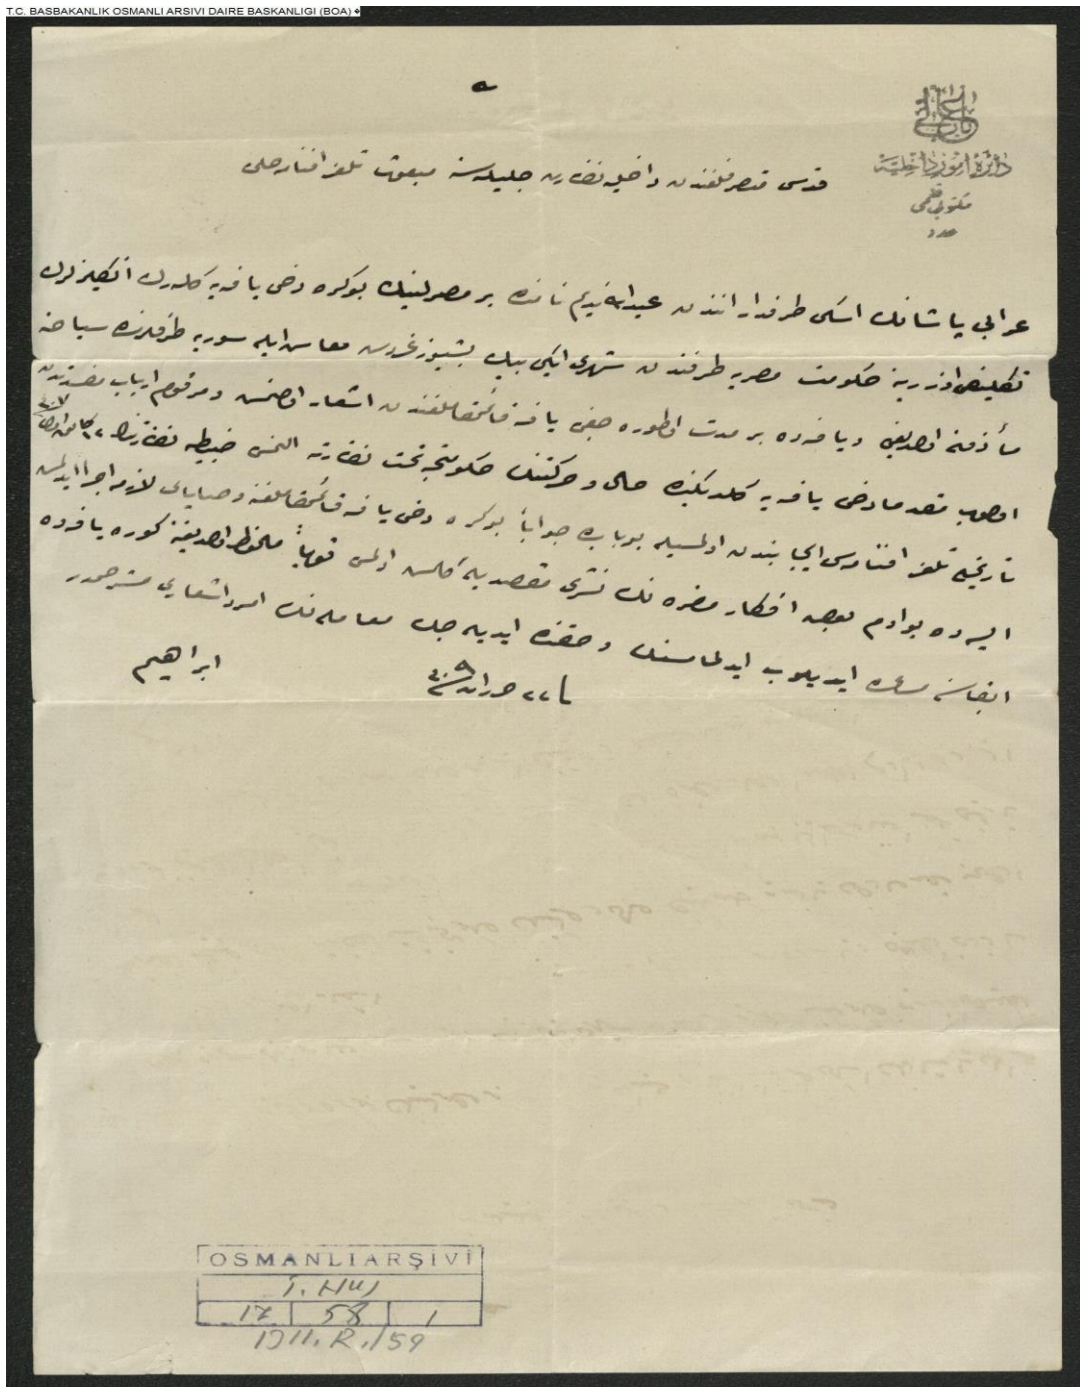 T.C. BASBAKANLIK OSMANLI ARSIVI DAIRE BASKANLIGI (BOA)
باب عالی
دائرۀ امور داخلیه
مکتوبی قلمی
عدد
قدس متصرفلغندن داخلیه نظارت جلیله‌سنه مبعوث تلغرافنامه حلی
عرابی پاشانك اسکی طرفدارانندن عبدالله ندیم نامنده بر مصرلینك بوکره دخی یافه‌یه کله‌رك انکلیزلرك
تکلیفی اوزرینه حکومت مصریه طرفندن شهری ایکی بیك بشیوز غروش معاش ایله سوریه طرفلرنده سیاحته
مأذون اولدیغی و یافه‌ده بر مدت اوطوره‌جغی یافه قائممقاملغندن اشعار اولنمش و مرقوم ارباب مفسدتدن
اولوب مقدما دخی یافه‌یه کلدیکنده حال و حرکتنك حکومتجه تحت نظارته النمسی ضبطیه نظارتنك
تاریخلی تلغرافنامه‌سی ایجابندن اولمسیله بوبابده جواباً بوکره دخی یافه قائممقاملغنه وصایای لازمه اجرا ایدلمش
ایسه‌ده بوادم بعض افکار مضره‌نك نشری مقصدیله کلمش اولمسی قویاً ملحوظ اولدیغنه کوره یافه‌ده
ابقاسنه مساعده ایدیلوب ایدلمامسنك و حقنده ایدیله‌جك معامله‌نك امر و اشعاری مسترحمدر
فی ٢٢ حزیران سنه ٣٠٩
ابراهیم
OSMANLI ARŞİVİ
İ. HUS
17 58 1
1311.R./59